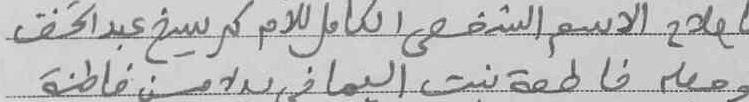 اصلاح الاسم الشخصي الكامل للام كريسيخ عبد الحق
وجعله فاطمة بنت اليماني بدلا من فاطنة